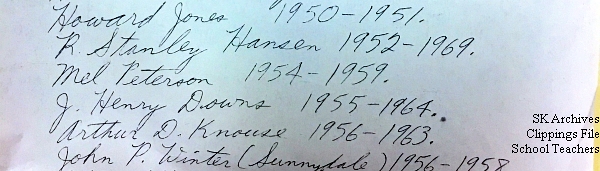 Howard Jones 1950-1951.
R. Stanley Hansen 1952-1969.
Mel Peterson 1954-1959.
J. Henry Downs 1955-1964.
Arthur D. Knouse 1956-1963.
John P. Winter (Sunnydale) 1956-1958
SK Archives
Clippings File
School Teachers